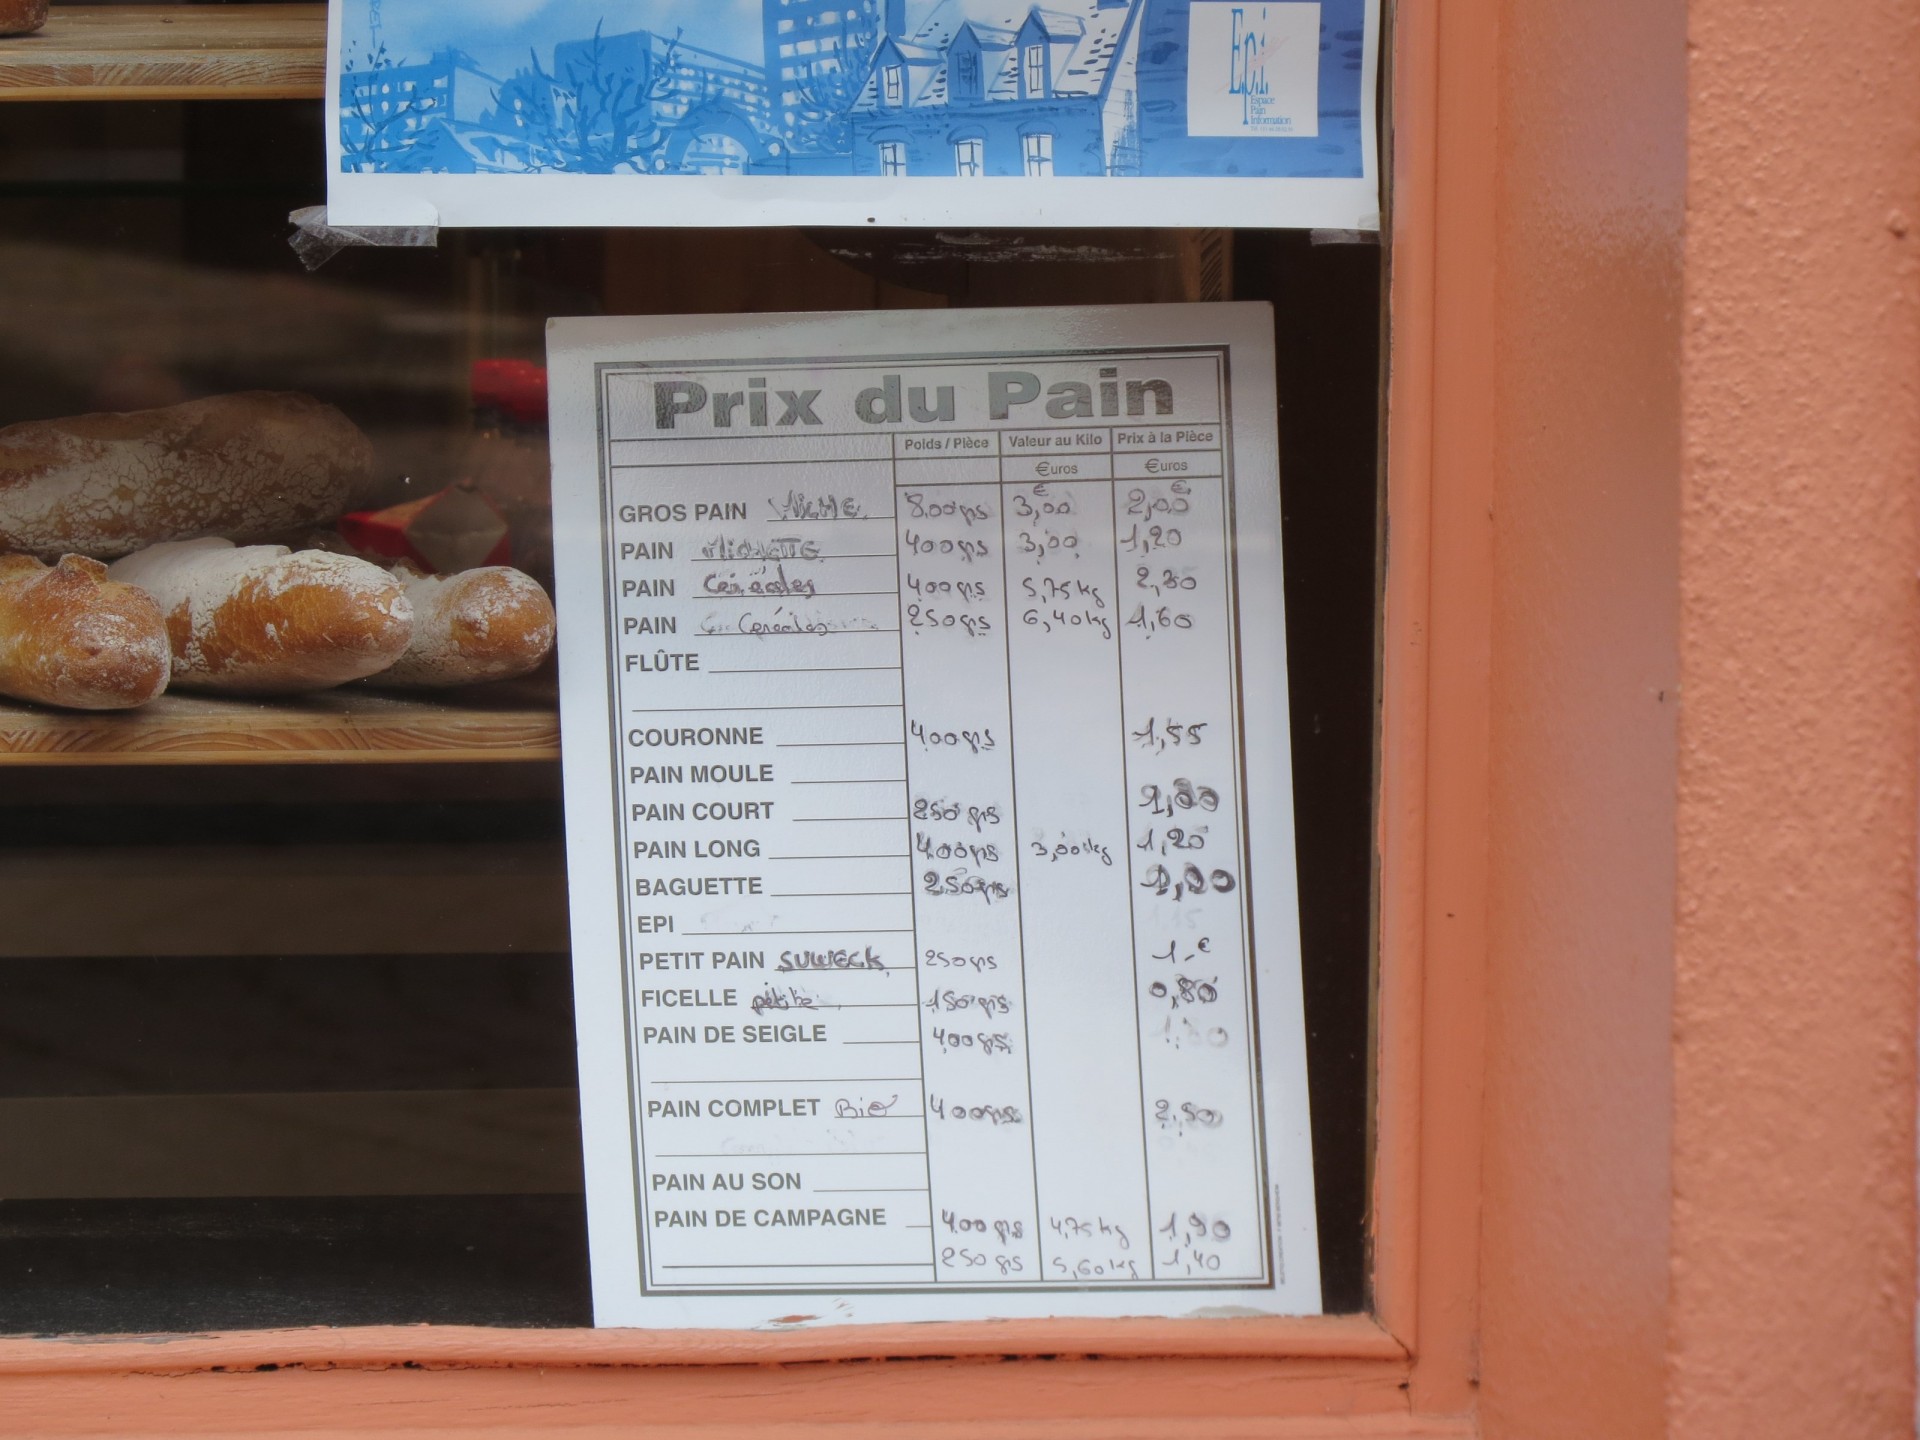 Epi
Espace
Pain
Information
Prix du Pain
Poids / Pièce Valeur au Kilo Prix à la Pièce
€uros €uros
GROS PAIN 800grs 3,00 € 2,00 €
PAIN 400grs 3,00 1,20
PAIN Céréales 400grs 5,75kg 2,30
PAIN Céréales 250grs 6,40kg 1,60
FLÛTE
COURONNE 400grs 1,55
PAIN MOULE
PAIN COURT 250grs 1,00
PAIN LONG 400grs 3,00kg 1,20
BAGUETTE 250grs 1,00
EPI 1,15
PETIT PAIN SUWECK 250grs 1,-€
FICELLE petite 150grs 0,80
PAIN DE SEIGLE 400grs
PAIN COMPLET Bio 400grs 2,50
PAIN AU SON
PAIN DE CAMPAGNE 400grs 4,75kg 1,90
250grs 5,60kg 1,40